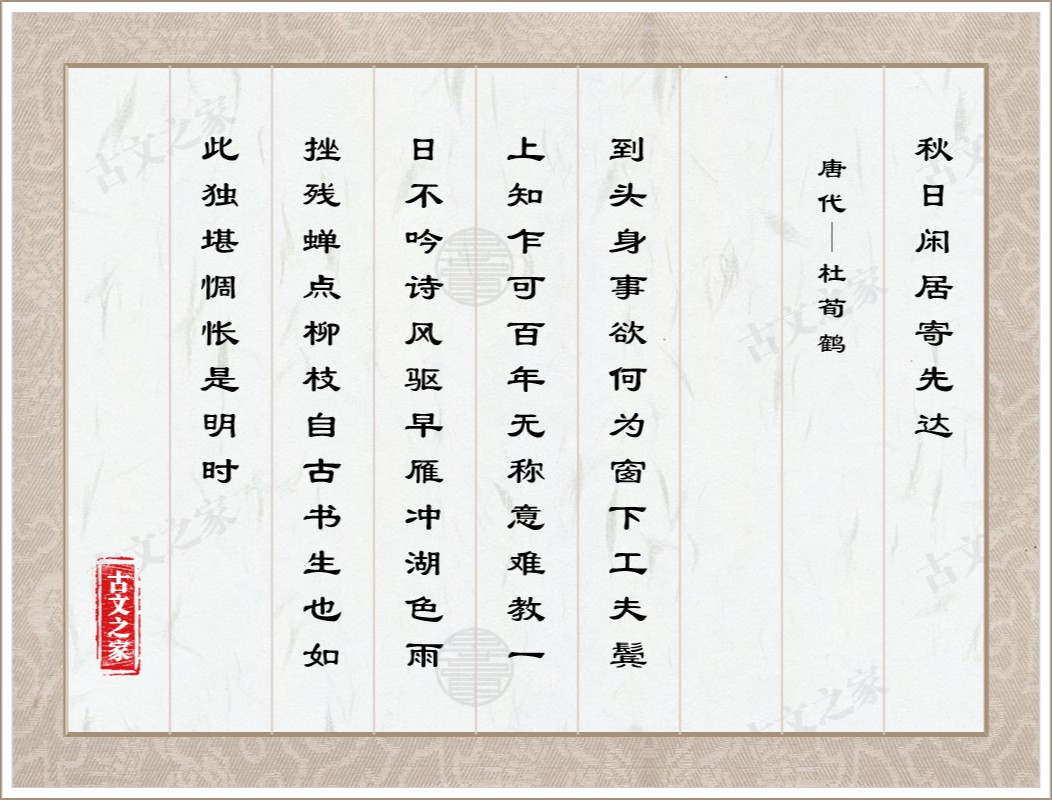 秋日闲居寄先达
唐代｜杜荀鹤
到头身事欲何为窗下工夫鬓
上知乍可百年无称意难教一
日不吟诗风驱早雁冲湖色雨
挫残蝉点柳枝自古书生也如
此独堪惆怅是明时
古文之家
古文之家
古文之家
古文之家
古文之家